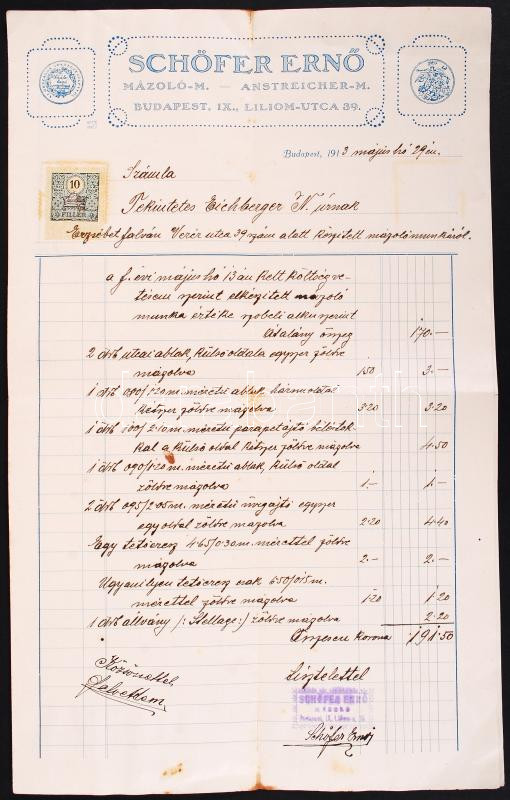 SCHÖFER ERNŐ
MÁZOLÓ-M. — ANSTREICHER-M.
BUDAPEST, IX., LILIOM-UTCA 39.
Budapest, 1913 május hó 29 én.
10
FILLÉR
Számla
Tekintetes Eichberger N. úrnak
Erzsébet falván Vezér utca 39 szám alatt készített mázoló munkáról.
a f. évi május hó 13 án kelt költségve-
tésem szerint elkészített mázoló
munka értéke szobeli alku szerint
Átalány összeg 170.—
2 drb utcai ablak, külső oldala egyszer zöldre
mázolva 1.50 3.—
1 drb 080/120 m. méretű ablak három oldal
kétszer zöldre mázolva 3.20 3.20
1 drb 100/210 m. méretű parapetajtó
a külső oldal kétszer zöldre mázolva 4.50
1 drb 090/120 m. méretű ablak, külső oldal
zöldre mázolva 1.— 1.—
2 drb 095/205 m. méretű üvegajtó egyszer
egy oldal zöldre mázolva 2.20 4.40
Egy tetőeresz 4.65/0.30 m. mérettel zöldre
mázolva 2.— 2.—
Ugyanilyen tetőeresz csak 6.50/0.15 m.
mérettel zöldre mázolva 1.20 1.20
1 drb állvány /: Stellage :/ zöldre mázolva 2.20
Összesen Korona 191.50
Köszönettel
felvettem
Tisztelettel
SCHÖFER ERNŐ
MÁZOLÓ
Budapest, IX. Liliom-u. 39.
Schöfer Ernő